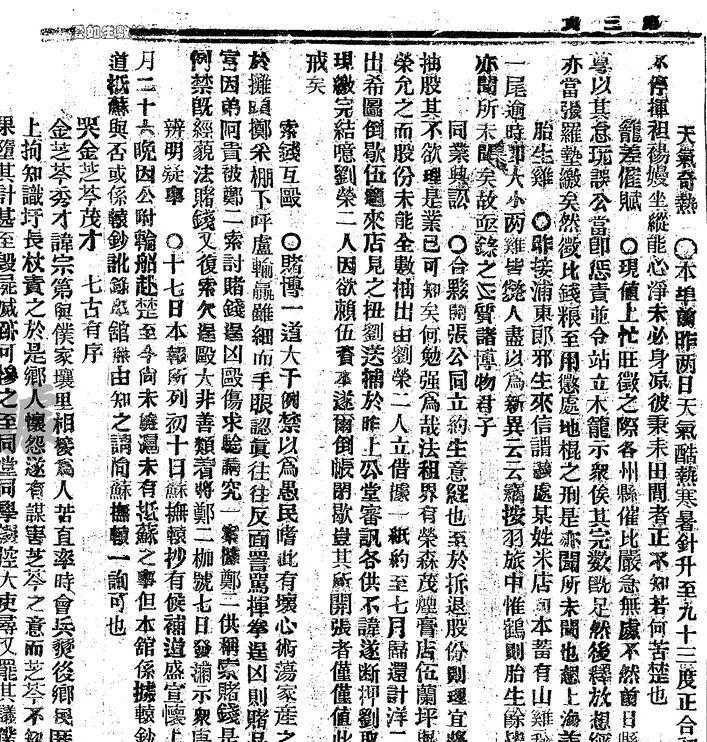 第三頁
天氣奇熱　○本埠前昨两日天氣酷熱寒暑針升至九十三度正合
不停揮袒裼嫚坐縱能心淨未必身凉彼秉耒田間者正不知若何苦楚也
籠差催賦　○現值上忙旺徵之際各州縣催比嚴急無處不然前日縣
以其怠玩誤公當即懲責並令站立木籠示衆俟其完數既足然後釋放想
亦當張羅墊繳矣然徵比錢粮至用懲處地棍之刑是亦聞所未聞也想上海
胎生雞　○昨接浦東郎邪生來信謂該處某姓米店向本蓄有山雞
一尾逾時即大小两雞皆斃人盡以爲新異云云竊按羽族中惟鶴則胎生餘
亦聞所未聞矣故亟錄之以質諸博物君子
同業興訟　○合夥開張公同立約生意經也至於拆退股份則理宜將
抽股其不欲理是業已可知矣何勉强爲哉法租界有榮森茂煙膏店伍蘭坪與
榮允之而股份未能全數抽出由劉榮二人立借據一紙約至七月歸還計洋二
出希圖倒歇伍竉來店見之扭劉送捕於昨上公堂審訊各供不諱遂斷押劉
現繳完結噫劉榮二人因欲賴伍資本遂爾倒帳閉歇豈其所開張者僅僅值此
戒矣
索錢互毆　○賭博一道大干例禁以爲愚民嗜此有壞心術蕩家產之
於攤頭擲采棚下呼盧輸贏雖細而手眼認真往往反面詈駡揮拳逞凶則賭
官因弟阿貴被鄭二索討賭錢逞凶毆傷求驗講究一案據鄭二供稱索賭錢是
例禁旣經藐法賭錢又復索欠逞毆大非善類着將鄭二枷號七日發浦示衆
辨明疑擧　○十七日本報所列初十日蘇撫轅抄有候補道盛宣懷上
月二十六晚因公附輪船赴楚至今尚未旋滬未有抵蘇之事但本館係據轅鈔
道抵蘇與否或係轅鈔訛錄本館無由知之請向蘇撫轅一詢可也
哭金芝岑茂才　七古有序
金芝岑秀才諱宗第與僕家壤里相接爲人苦直率時會兵燹後鄉民
上拘知識圩長杖責之於是鄉人懷怨遂有謀害芝岑之意而芝岑不
果墮其計甚至毀屍滅跡可慘之至同堂同學控大吏尋又罷其議僕